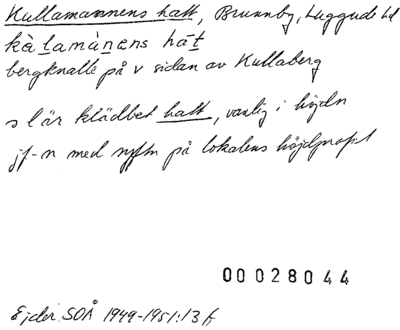 Kullamannens hatt, Brunnby, Luggude hd
kàlamànens hát
bergknalle på v sidan av Kullaberg
s l är klädbet hatt, vanlig i höjdn
jf-n med syftn på lokalens höjdprofil
00028044
Ejder SOÅ 1949-1951:13 f